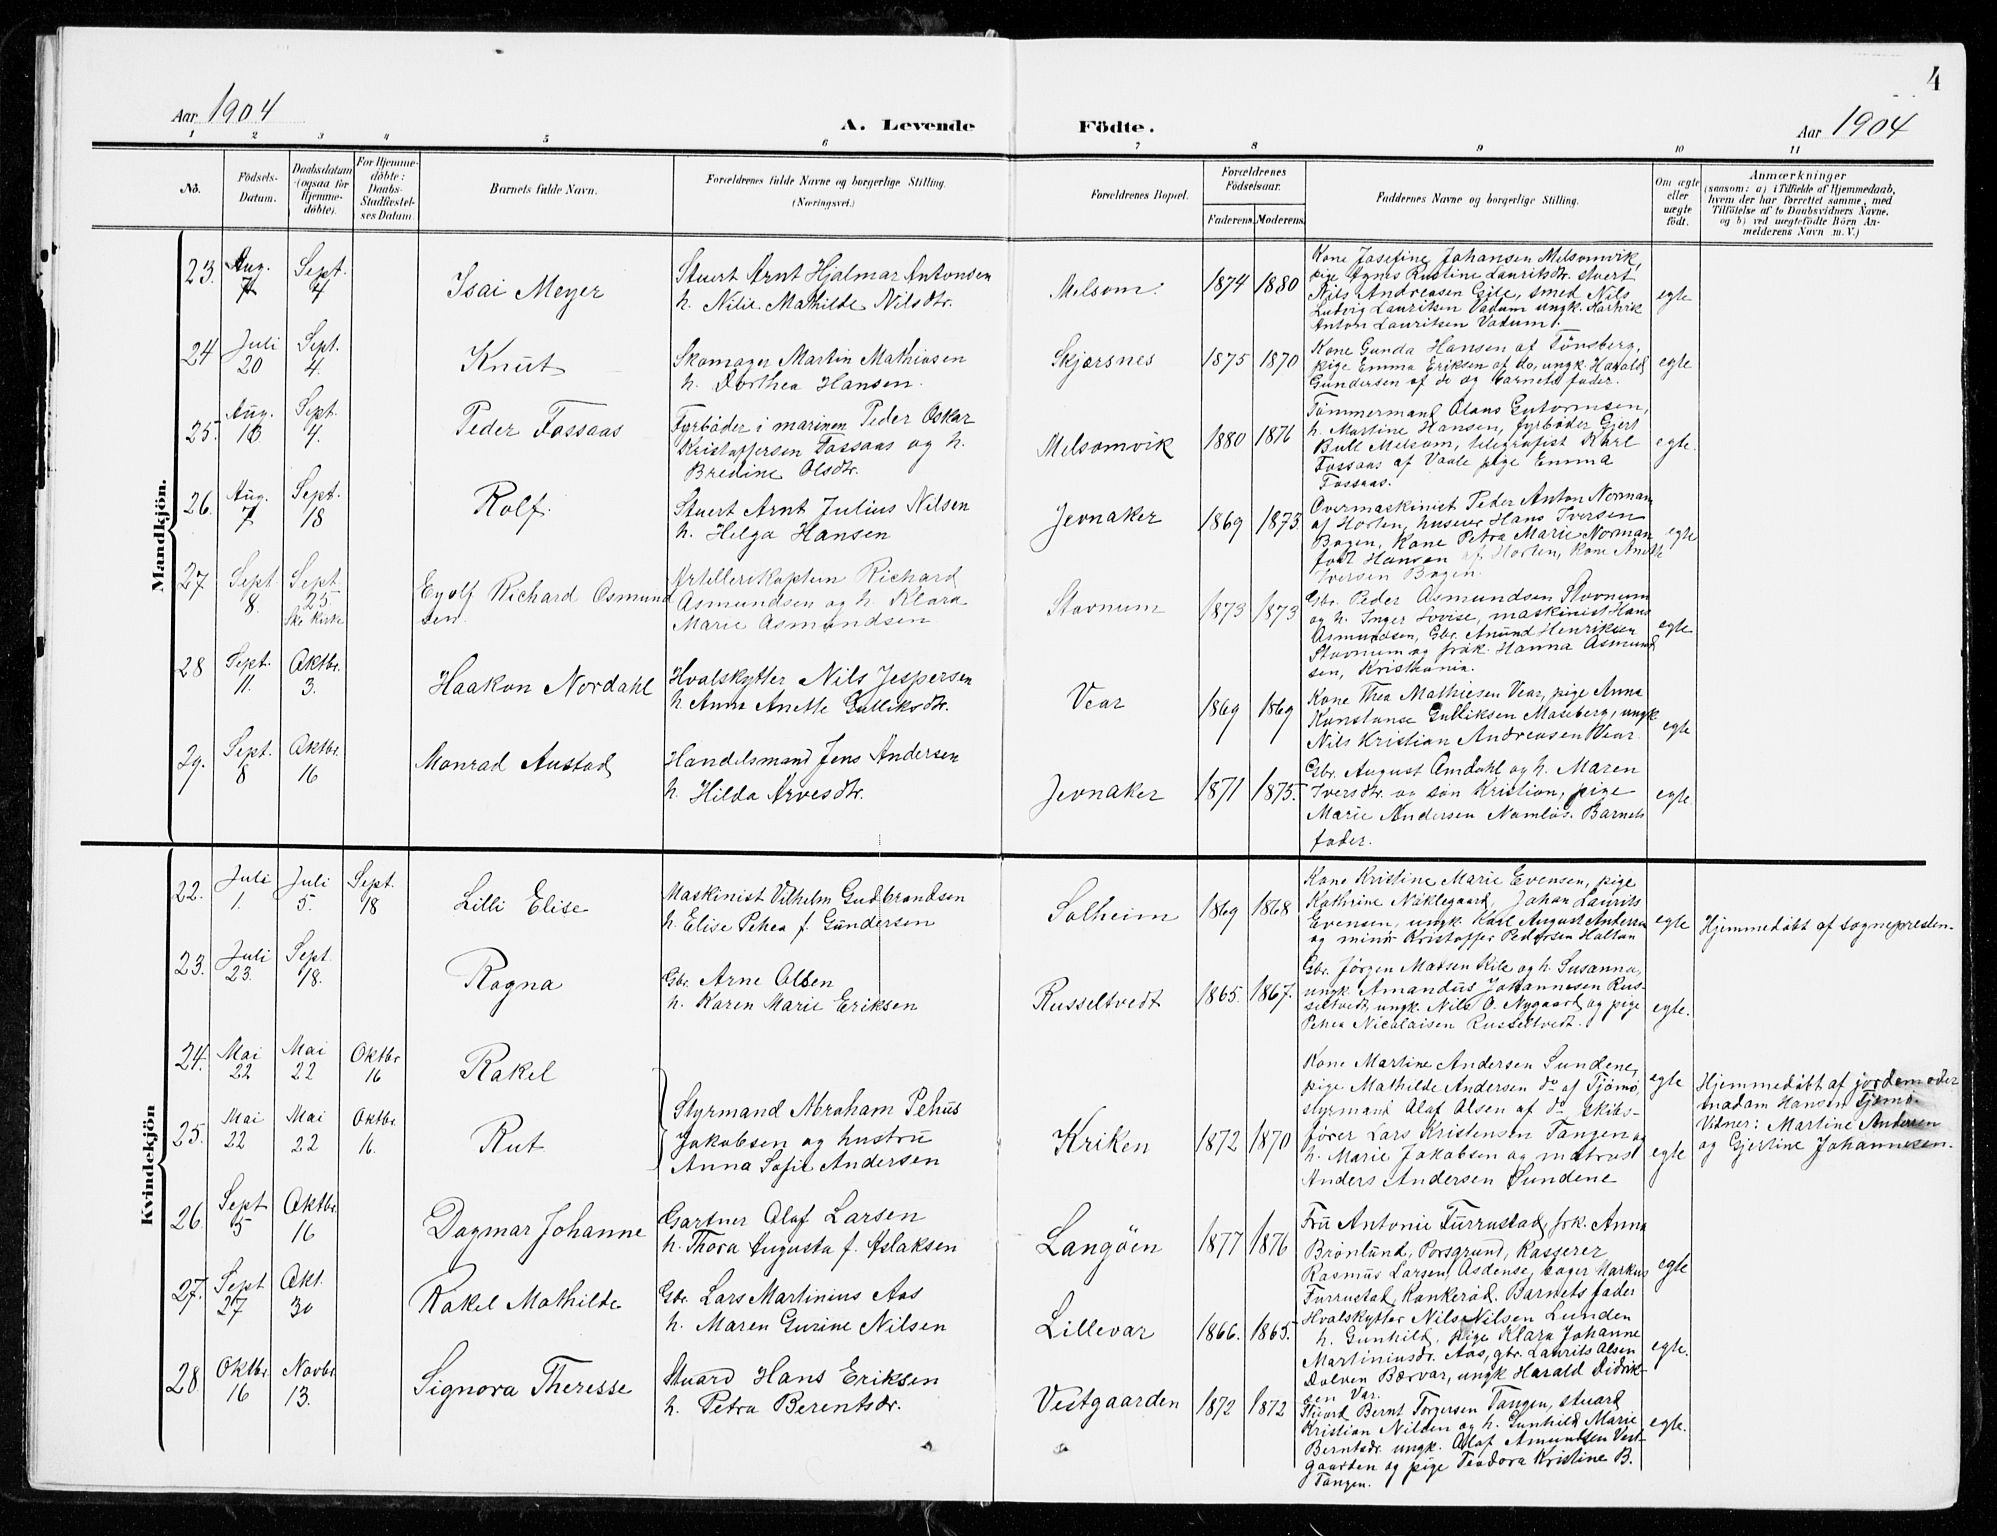 4
Aar 1904 A. Levende Födte. Aar 1904
1 2 3 4 5 6 7 8 9 10 11
No.
Födsels-
Datum.
Daabsdatum
(ogsaa for
Hjemme-
döbte).
For Hjemme-
döbte:
Daabs-
Stadfæstel-
ses Datum.
Barnets fulde Navn.
Forældrenes fulde Navne og borgerlige Stilling.
(Næringsvei.)
Forældrenes Bopæl.
Forældrenes
Födselsaar.
Faderens. Moderens.
Faddernes Navne og borgerlige Stilling.
Om ægte
eller
uægte
födt.
Anmærkninger
(saasom: a) i Tilfælde af Hjemmedaab,
hvem der har forrettet samme, med
Tilföielse af to Daabsvidners Navne,
og b) ved uægtefödte Börn An-
melderens Navn m. V.)
Mandkjön.
23. Aug. 7 Sept. 4
Isai Meyer
Stuert Arnt Hjalmar Antonsen
h. Nilie Mathilde Nilsdtr.
Melsom. 1874 1880
Kone Josefine Johansen Melsomvik,
pige Agnes Kustine Lauritsdtr. stuert
Nils Andreasen Gile, smed Nils
Ludvig Lauritsen Vadum ungk. Hartvik
Anton Lauritsen Vadum.
egte
24 Juli 20 Sept. 4.
Knut
Skomager Martin Mathiasen
h. Dorthea Hansen.
Skjærsnes 1875 1870
Kone Gunda Hansen af Tönsberg,
pige Emma Eriksen af do, ungk. Harald
Gundersen af do og barnets fader.
egte
25. Aug. 16 Sept. 4.
Peder Fossaas
Fyrböder i marinen Peder Oskar
Kristoffersen Fossaas og h.
Bredine Olsdtr.
Melsomvik 1880 1876
Tömmermand Olaus Gutormsen,
h. Martine Hansen, fyrböder Gjert
Bull Melsom, telegrafist Karl
Fossaas af Vaale pige Emma
Fossaas.
egte.
26. Aug. 7 Sept. 18
Rolf.
Stuert Arnt Julius Nilsen
h. Helga Hansen
Jevnaker 1869 1875
Overmaskinist Peder Anton Norman
af Horten, huseier Hans Iversen
Bogen, Kone Petra Marie Norman
født Hansen af Horten, kone Aneth
Iversen Bogen.
egte
27. Sept 8. Sept. 25 Ske Kirke
Eyolf Richard Osmund
sen.
Artellerikaptein Richard
Asmundsen og h. Klara
Marie Asmundsen
Stovnum 1873 1873
Gbr. Peder Asmundsen Stovnum
og h. Inger Lovise, maskinist Hans
Asmundsen, Gbr. Anund Henriksen
Stovnum og frøk. Hanna Asmund
sen, Kristiania.
egte
28 Sept. 11. Oktbr. 3.
Haakon Nordahl
Hvalskytter Nils Jespersen
h. Anna Anette Gulliksdtr.
Vear 1869 1869
Kone Thea Mathiesen Vear, pige Anna
Konstanse Gulliksen Maseberg, ungk
Nils Kristian Andreasen Vear.
egte
29. Sept. 8 Oktbr. 16
Monrad Austad
Handelsmand Jens Andersen
h. Hilda Arvesdtr.
Jevnaker 1871 1875.
Gbr. August Amdahl og h. Maren
Iversdtr. og søn Kristian, pige
Marie Andersen Nomløs. Barnets
fader.
egte.
Kvindekjön
22. Juli 1. Juli 5. Sept. 18
Lilli Elise
Maskinist Vilhelm Gudbrandsen
h. Elise Pehea f. Gundersen
Solheim 1869 1868
Kone Kristine Marie Evensen, pige
Kathrine Naklegaard, Johan Laurits
Evensen, ungk. Karl August Andersen
og minör Kristoffer Pedersen Holtan
egte Hjemmedøbt af sognepresten.
23. Juli 23. Sept. 18.
Ragna
Gbr. Arne Olsen
h. Karen Marie Eriksen
Russeltvedt 1865. 1867.
Gbr. Jørgen Madsen Kile og h. Susanna,
ungk. Amandus Johannesen Rus-
seltvedt, ungk. Nils O. Nygaard og pige
Pehea Nicolaisen Russeltvedt.
egte.
24. Mai 22 Mai 22 Oktbr 16
Rakel
25. Mai 22 Mai 22 Oktbr 16.
Rut
Styrmand Abraham Pehus
Jakobsen og hustru
Anna Sofie Andersen
Kriken 1872 1870
Kone Martine Andersen Sundene,
pige Mathilde Andersen do af Tjömö,
styrmand Olaf Olsen af do skibs-
förer Lars Kristensen Tangen og
h. Marie Jakobsen og matros
Anders Andersen Sundene
egte
egte
Hjemmedøbt af jordemoder
madam Hansen Tjømø.
Vidner: Martine Andersen
og Gjertine Johannesen.
26. Sept 5 Oktbr. 16
Dagmar Johanne
Gartner Olaf Larsen
h. Thora Augusta f. Aslaksen
Langøen 1877 1876
Fru Antonie Furrustad, frk. Anna
Brønlund, Porsgrund, Kasserer
Rasmus Larsen, Asdense, bager Markus
Furrustad, Kankerød. Barnets fader
egte
27. Sept 27 Okt. 30
Rakel Mathilde
Gbr. Lars Martinius Aas
h. Maren Gurine Nilsen
Lillevar 1866. 1865.
Hvalskytter Nils Nilsen Lunden
h. Gunhild, pige Klara Johanne
Martiniusdr. Aas, gbr. Laurits Olsen
Dalven Bærvar, ungk Harald Didrik-
sen Var.
egte.
28. Oktbr. 16 Novbr. 13.
Signora Theresse
Stuard Hans Eriksen
h. Petra Berentsdr.
Vestgaarden 1872 1872
Stuard Bernt Torgersen Tangen, stuard
Kristian Nilsen og h. Gunhild Marie
Berntsdr. ungk. Olaf Amundsen Vest-
gaarden og pige Teodora Kristine B.
Tangen.
egte.